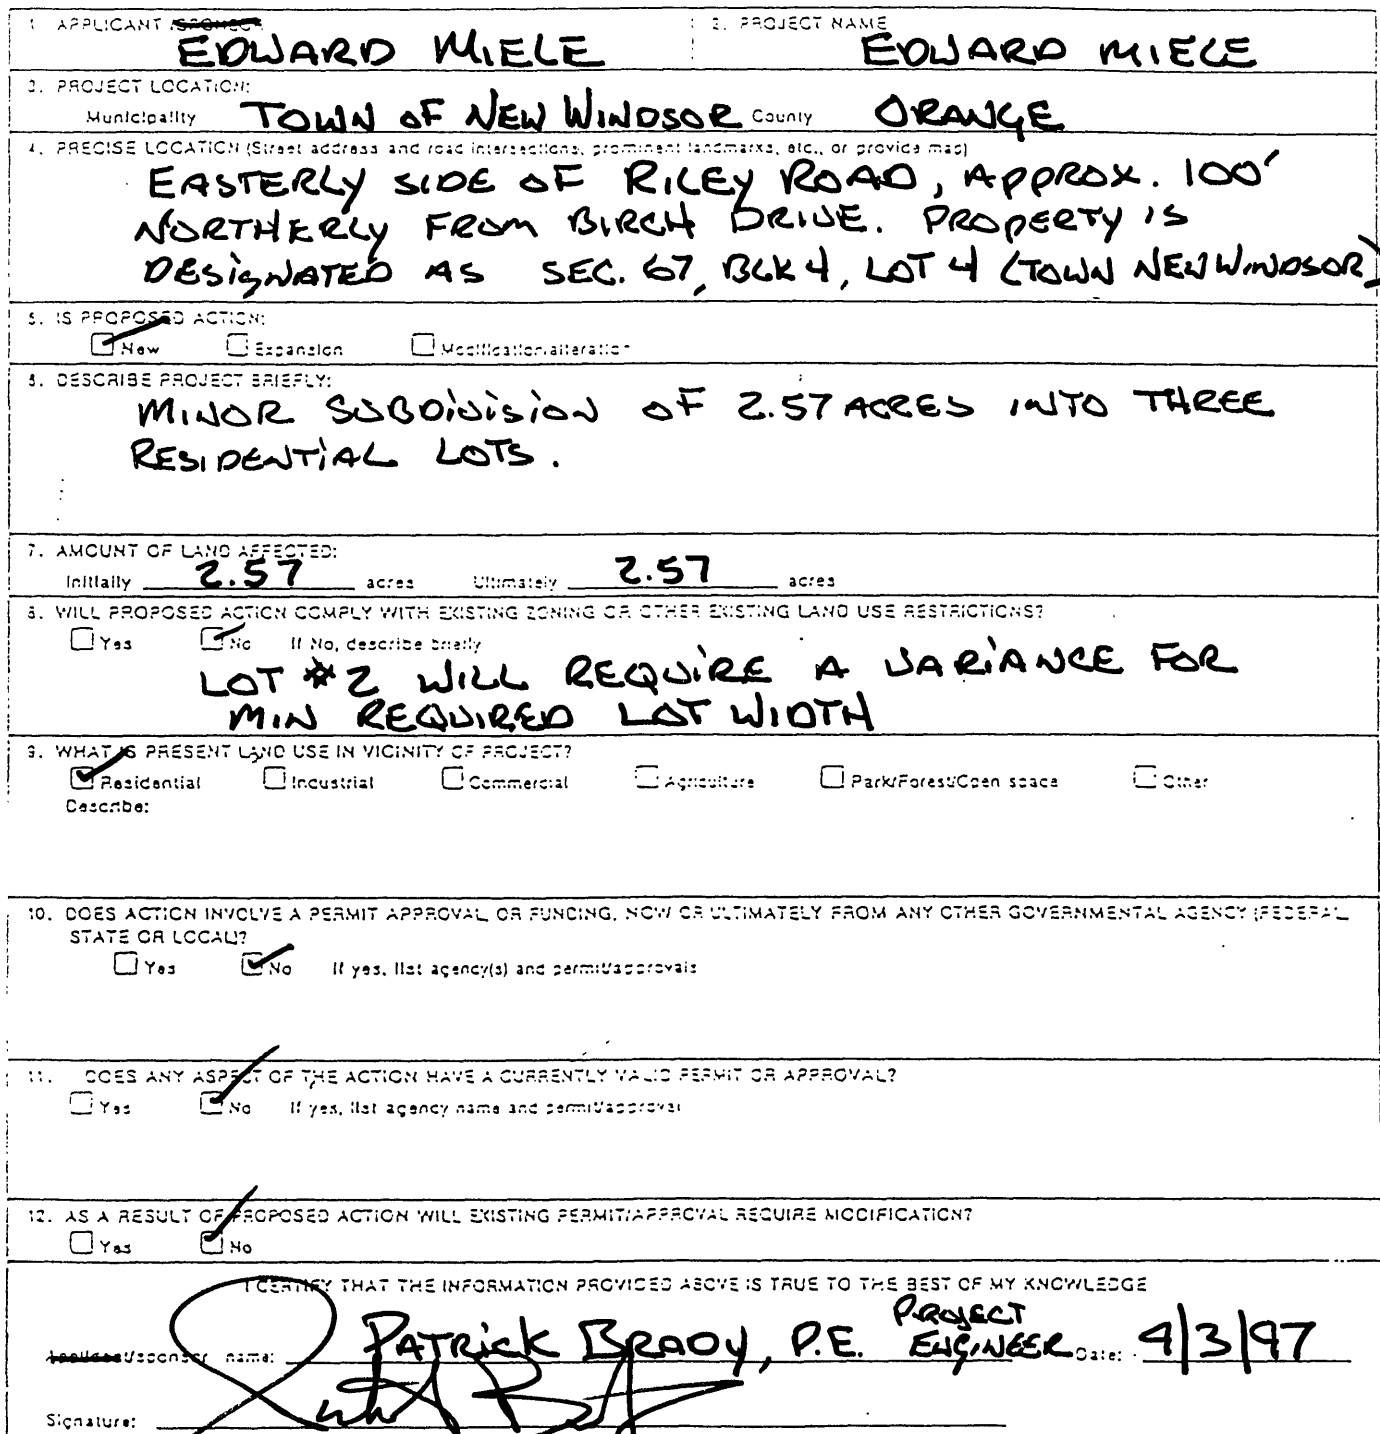 1. APPLICANT /SPONSOR 2. PROJECT NAME
EDWARD MIELE EDWARD MIELE
3. PROJECT LOCATION:
Municipality TOWN OF NEW WINDSOR County ORANGE
4. PRECISE LOCATION (Street address and road intersections, prominent landmarks, etc., or provide map)
EASTERLY SIDE OF RILEY ROAD, APPROX. 100'
NORTHERLY FROM BIRCH DRIVE. PROPERTY IS
DESIGNATED AS SEC. 67, BLK 4, LOT 4 (TOWN NEW WINDSOR)
5. IS PROPOSED ACTION:
New Expansion Modification/alteration
6. DESCRIBE PROJECT BRIEFLY:
MINOR SUBDIVISION OF 2.57 ACRES INTO THREE
RESIDENTIAL LOTS.
7. AMOUNT OF LAND AFFECTED:
Initially 2.57 acres Ultimately 2.57 acres
8. WILL PROPOSED ACTION COMPLY WITH EXISTING ZONING OR OTHER EXISTING LAND USE RESTRICTIONS?
Yes No If No, describe briefly
LOT #2 WILL REQUIRE A VARIANCE FOR
MIN REQUIRED LOT WIDTH
9. WHAT IS PRESENT LAND USE IN VICINITY OF PROJECT?
Residential Industrial Commercial Agriculture Park/Forest/Open space Other
Describe:
10. DOES ACTION INVOLVE A PERMIT APPROVAL, OR FUNDING, NOW OR ULTIMATELY FROM ANY OTHER GOVERNMENTAL AGENCY (FEDERAL,
STATE OR LOCAL)?
Yes No If yes, list agency(s) and permit/approvals
11. DOES ANY ASPECT OF THE ACTION HAVE A CURRENTLY VALID PERMIT OR APPROVAL?
Yes No If yes, list agency name and permit/approval
12. AS A RESULT OF PROPOSED ACTION WILL EXISTING PERMIT/APPROVAL REQUIRE MODIFICATION?
Yes No
I CERTIFY THAT THE INFORMATION PROVIDED ABOVE IS TRUE TO THE BEST OF MY KNOWLEDGE
PROJECT
Applicant/sponsor name: PATRICK BRADY, P.E. ENGINEER Date: 9/3/97
Signature: